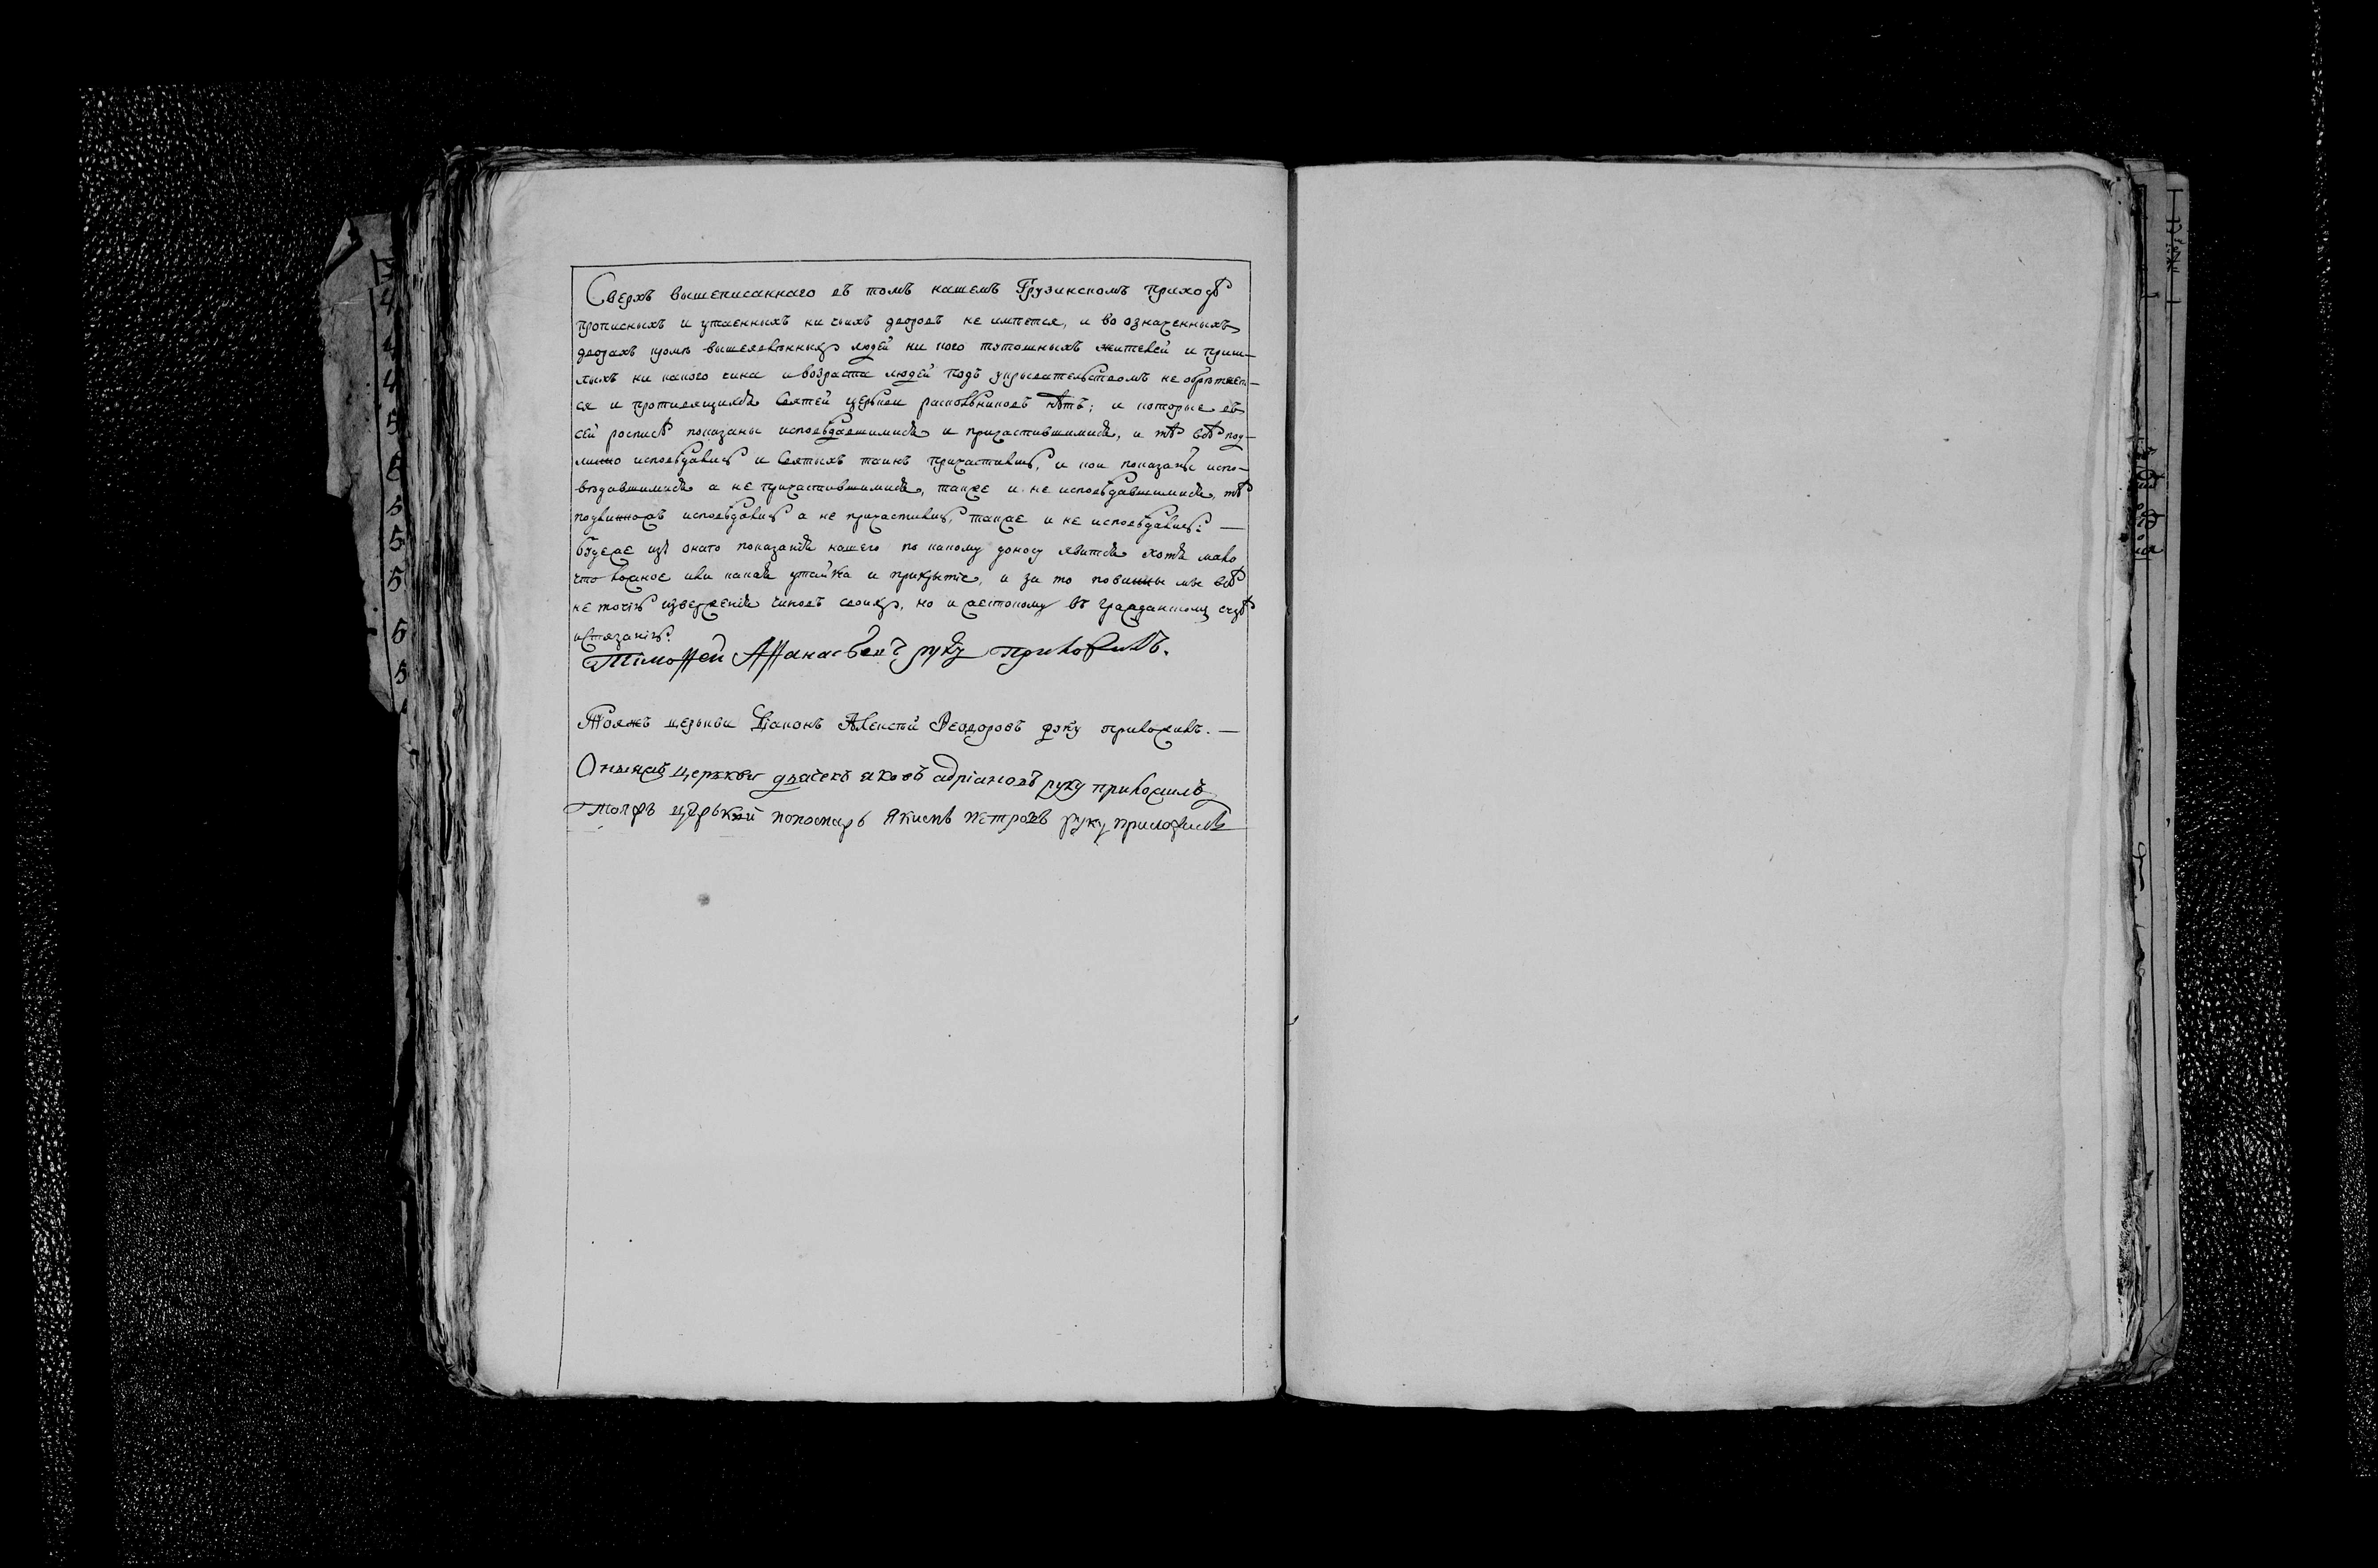 Сверхъ вышеписаннаго въ томъ нашемъ Грузинскомъ приходѣ
прописныхъ и утаенныхъ ни чьихъ дворовъ не имѣется, и во означенныхъ
дворахъ кромѣ вышеявленныхъ людей ни кого тутошныхъ жителей и приш-
лыхъ ни какого чина и возраста людей подъ укрывательствомъ не обрѣтает-
ся и противящихся Святей церькви раскольниковъ нѣтъ; и которые въ
сей росписѣ показаны исповѣдавшимися и причастившимися, и тѣ всѣ под-
линно исповѣдались и Святыхъ таинъ причастились, и кои показаны испо-
вѣдавшимися а не причастившимися, такъже и не исповѣдавшимися, тѣ
исповѣдались а не причастились, такъже и не исповѣдались: —
будеже изъ онаго показанія нашего по какому доносу явится хотя мало
что ложное или какая утайка и прикрытіе, и за то повинны мы всѣ
не точію изверженія чиновъ своихъ, но и жестокому въ гражданскомъ судѣ
истязанію.
Тімоѳей Аѳанасьевъ руку приложилъ.
Тояжъ церькви Діаконъ Алексѣй Ѳеодоровъ руку приложилъ. —
Оныяжъ церькви дьячекъ яковъ адріановъ руку приложилъ
тояжъ церькви понамарь Якимъ петровъ руку приложилъ
4
4
5
5
5
5
5
5